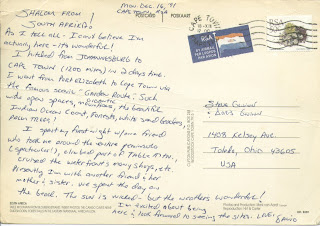 MON. DEC 16, '91
CAPE TOWN, RSA
SHALOM FROM
SOUTH AFRICA!
POSTCARD POSKAART
As I tell all - I can't believe I'm
actually here - it's wonderful!
I hitched from JOHANNESBURG to
CAPE TOWN (1200 miles) in 2 days time.
I went from Port Elizabeth to Cape Town via
the famous scenic "Garden Route" - Such
wide open spaces, mountains, the beautiful
Indian Ocean Coast, Forests, white sand beaches,
PALM TREES!
I spent my first night w/ one friend
who took me around the entire peninsula
(spectacular!), climbed part of TABLE MTN.,
cruised the waterfront's many shops, etc.
Presently I'm with another friend & her
mother & sister. We spent the day on
the beach. The sun is wicked - but the weather's wonderful!
I'm excited about being
here & look forward to seeing the sites. LOVE, DAVID
CAPE TOWN
RSA
RSA
Steve Guinn
& Doris Guinn
1409 Kelsey Ave.
Toledo, Ohio 43605
USA